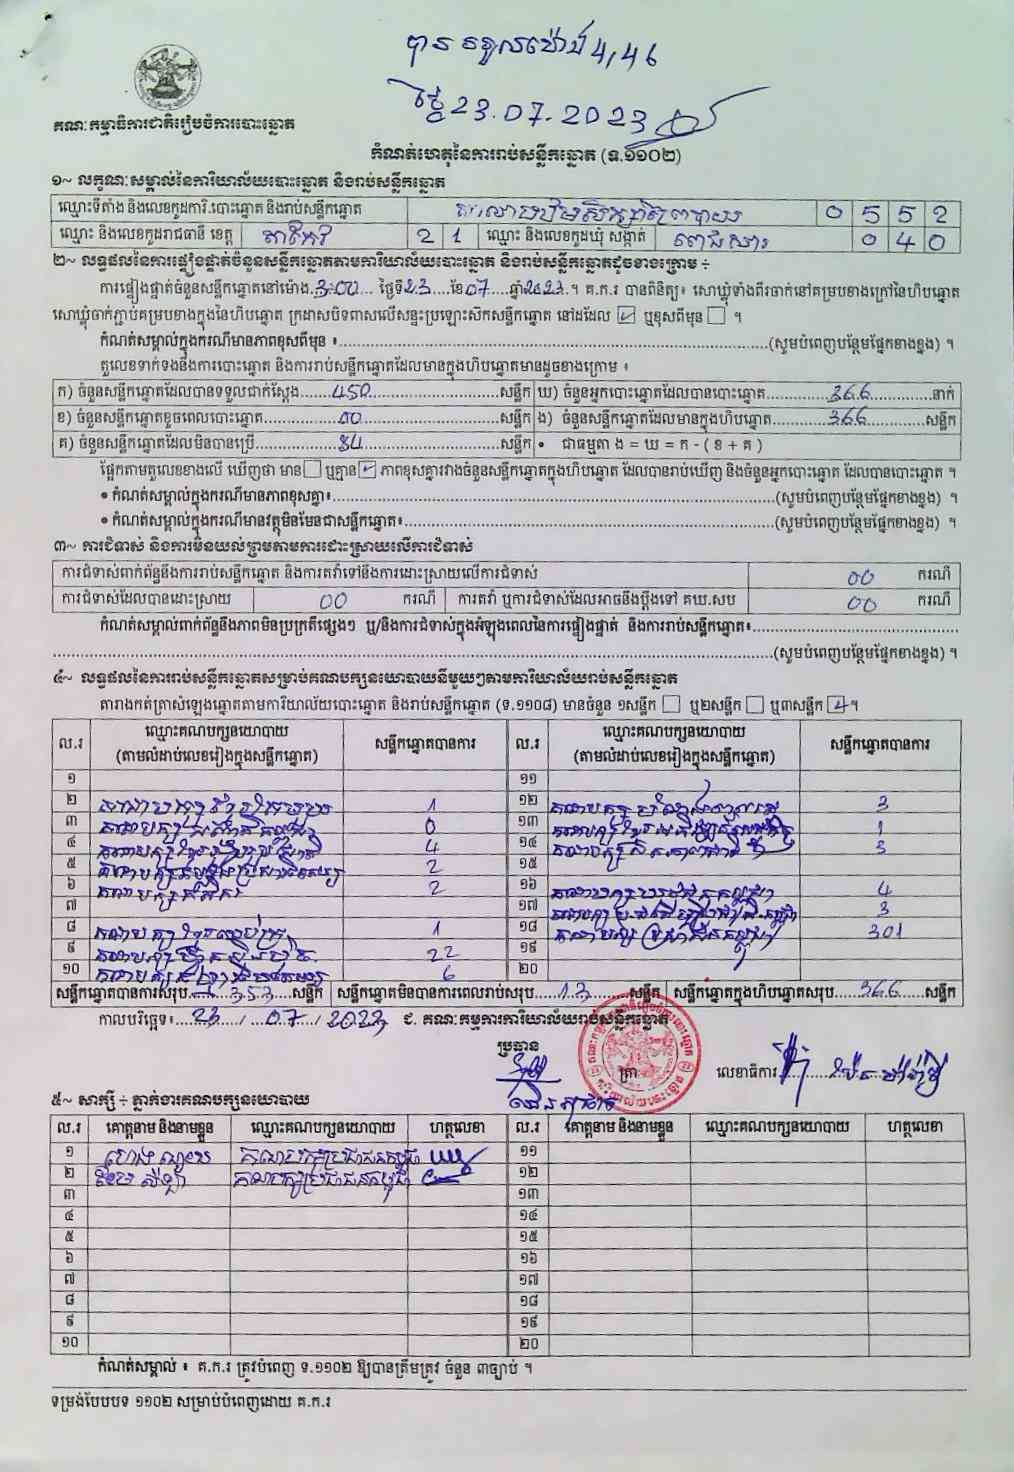 បានទទួលម៉ោង 4,46
ថ្ងៃ 23.07.2023
គណៈកម្មាធិការជាតិរៀបចំការបោះឆ្នោត
កំណត់ហេតុនៃការរាប់សន្លឹកឆ្នោត (ទ.១១០២)
១~ លក្ខណៈសម្គាល់នៃការិយាល័យបោះឆ្នោត និងរាប់សន្លឹកឆ្នោត
ឈ្មោះទីតាំង និងលេខកូដការិ.បោះឆ្នោត និងរាប់សន្លឹកឆ្នោត 0 5 5 2
ឈ្មោះ និងលេខកូដរាជធានី ខេត្ត តាកែវ 2 1 ឈ្មោះ និងលេខកូដឃុំ សង្កាត់ ពេជសារ 0 4 0
២~ លទ្ធផលនៃការផ្ទៀងផ្ទាត់ចំនួនសន្លឹកឆ្នោតតាមការិយាល័យបោះឆ្នោត និងរាប់សន្លឹកឆ្នោតដូចខាងក្រោម ÷
ការផ្ទៀងផ្ទាត់ចំនួនសន្លឹកឆ្នោតនៅម៉ោង..3:00... ថ្ងៃទី23......ខែ07......ឆ្នាំ2023..។ គ.ក.រ បានពិនិត្យ៖ សោឃ្លុំទាំងពីរចាក់នៅគម្របខាងក្រៅនៃហិបឆ្នោត
សោឃ្លុំចាក់ភ្ជាប់គម្របខាងក្នុងនៃហិបឆ្នោត ក្រដាសបិទពាសលើសន្ទះប្រឡោះសឹកសន្លឹកឆ្នោត នៅដដែល ☑ ឬខុសពីមុន ☐ ។
កំណត់សម្គាល់ក្នុងករណីមានភាពខុសពីមុន ៖......(សូមបំពេញបន្ថែមផ្នែកខាងខ្នង) ។
តួលេខទាក់ទងនឹងការបោះឆ្នោត និងការរាប់សន្លឹកឆ្នោតដែលមានក្នុងហិបឆ្នោតមានដូចខាងក្រោម ៖
ក) ចំនួនសន្លឹកឆ្នោតដែលបានទទួលជាក់ស្តែង......450......សន្លឹក ឃ) ចំនួនអ្នកបោះឆ្នោតដែលបានបោះឆ្នោត......366......នាក់
ខ) ចំនួនសន្លឹកឆ្នោតខូចពេលបោះឆ្នោត......00......សន្លឹក ង) ចំនួនសន្លឹកឆ្នោតដែលមានក្នុងហិបឆ្នោត......366......សន្លឹក
គ) ចំនួនសន្លឹកឆ្នោតដែលមិនបានប្រើ......84......សន្លឹក • ជាធម្មតា ង = ឃ = ក - ( ខ + គ )
ផ្អែកតាមតួលេខខាងលើ ឃើញថា មាន ☐ ឬគ្មាន ☑ ភាពខុសគ្នារវាងចំនួនសន្លឹកឆ្នោតក្នុងហិបឆ្នោត ដែលបានរាប់ឃើញ និងចំនួនអ្នកបោះឆ្នោត ដែលបានបោះឆ្នោត ។
• កំណត់សម្គាល់ក្នុងករណីមានភាពខុសគ្នា៖......(សូមបំពេញបន្ថែមផ្នែកខាងខ្នង) ។
• កំណត់សម្គាល់ក្នុងករណីមានវត្ថុមិនមែនជាសន្លឹកឆ្នោត៖......(សូមបំពេញបន្ថែមផ្នែកខាងខ្នង) ។
៣~ ការជំទាស់ និងការមិនយល់ព្រមតាមការដោះស្រាយលើការជំទាស់
ការជំទាស់ពាក់ព័ន្ធនឹងការរាប់សន្លឹកឆ្នោត និងការតវ៉ាទៅនឹងការដោះស្រាយលើការជំទាស់ 00 ករណី
ការជំទាស់ដែលបានដោះស្រាយ 00 ករណី ការតវ៉ា ឬការជំទាស់ដែលអាចនឹងប្តឹងទៅ គឃ.សប 00 ករណី
កំណត់សម្គាល់ពាក់ព័ន្ធនឹងភាពមិនប្រក្រតីផ្សេងៗ ឬ/និងការជំទាស់ក្នុងអំឡុងពេលនៃការផ្ទៀងផ្ទាត់ និងការរាប់សន្លឹកឆ្នោត៖......
......(សូមបំពេញបន្ថែមផ្នែកខាងខ្នង) ។
៤~ លទ្ធផលនៃការរាប់សន្លឹកឆ្នោតសម្រាប់គណបក្សនយោបាយនីមួយៗតាមការិយាល័យរាប់សន្លឹកឆ្នោត
តារាងកត់ត្រាសំឡេងឆ្នោតតាមការិយាល័យបោះឆ្នោត និងរាប់សន្លឹកឆ្នោត (ទ.១១០៨) មានចំនួន ១សន្លឹក ☐ ឬ២សន្លឹក ☐ ឬ៣សន្លឹក 4 ។
ល.រ ឈ្មោះគណបក្សនយោបាយ (តាមលំដាប់លេខរៀងក្នុងសន្លឹកឆ្នោត) សន្លឹកឆ្នោតបានការ ល.រ ឈ្មោះគណបក្សនយោបាយ (តាមលំដាប់លេខរៀងក្នុងសន្លឹកឆ្នោត) សន្លឹកឆ្នោតបានការ
១ ១១
២ 1 ១២ 3
៣ គណបក្ស 0 ១៣ គណបក្ស 1
៤ គណបក្ស 4 ១៤ គណបក្ស 3
៥ គណបក្ស 2 ១៥
៦ គណបក្ស 2 ១៦ គណបក្ស 4
៧ ១៧ គណបក្ស 3
៨ គណបក្ស 1 ១៨ គណបក្សប្រជាជនកម្ពុជា 301
៩ គណបក្ស 22 ១៩
១០ គណបក្ស 6 ២០
សន្លឹកឆ្នោតបានការសរុប...353...សន្លឹក សន្លឹកឆ្នោតមិនបានការពេលរាប់សរុប...13...សន្លឹក សន្លឹកឆ្នោតក្នុងហិបឆ្នោតសរុប...366...សន្លឹក
កាលបរិច្ឆេទ៖...23.../...07.../ 2023 ជ. គណៈកម្មការការិយាល័យរាប់សន្លឹកឆ្នោត
ប្រធាន
ត្រា លេខាធិការ
៥~ សាក្សី ÷ ភ្នាក់ងារគណបក្សនយោបាយ
ល.រ គោត្តនាម និងនាមខ្លួន ឈ្មោះគណបក្សនយោបាយ ហត្ថលេខា ល.រ គោត្តនាម និងនាមខ្លួន ឈ្មោះគណបក្សនយោបាយ ហត្ថលេខា
១ គណបក្សប្រជាជនកម្ពុជា ១១
២ គណបក្សប្រជាជនកម្ពុជា ១២
៣ ១៣
៤ ១៤
៥ ១៥
៦ ១៦
៧ ១៧
៨ ១៨
៩ ១៩
១០ ២០
កំណត់សម្គាល់ ៖ គ.ក.រ ត្រូវបំពេញ ទ.១១០២ ឱ្យបានត្រឹមត្រូវ ចំនួន ៣ច្បាប់ ។
ទម្រង់បែបបទ ១១០២ សម្រាប់បំពេញដោយ គ.ក.រ